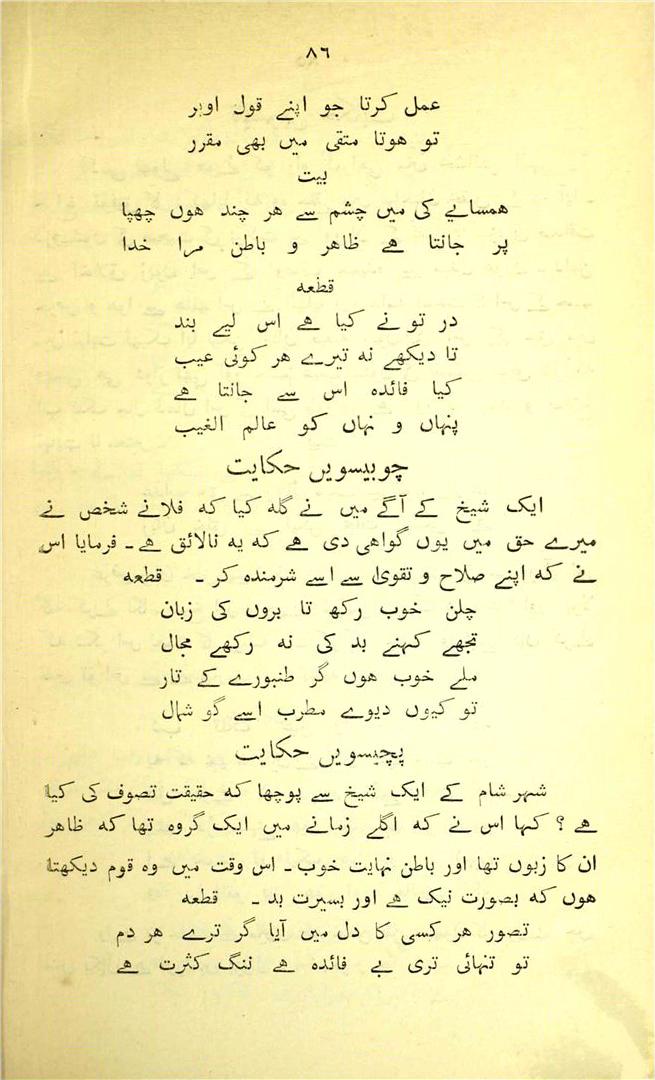 ٨٦
عمل کرتا جو اپنے قول اوپر
تو هوتا متقی میں بھی مقرر
بیت
همسایے کی میں چشم سے هر چند هوں چھپا
پر جانتا هے ظاهر و باطن مرا خدا
قطعه
در تو نے کیا هے اس لیے بند
تا دیکھے نه تیرے هر کوئی عیب
کیا فائده اس سے جانتا هے
پنہاں و نہاں کو عالم الغیب
چوبیسویں حکایت
ایک شیخ کے آگے میں نے گله کیا که فلانے شخص نے
میرے حق میں یوں گواهی دی هے که یه نالائق هے۔ فرمایا اس
نے که اپنے صلاح و تقویٰ سے اسے شرمنده کر ۔ قطعه
چلن خوب رکھ تا بروں کی زبان
تجھے کہنے بد کی نه رکھے مجال
ملے خوب هوں گر طنبورے کے تار
تو کیوں دیوے مطرب اسے گو شمال
پچیسویں حکایت
شہر شام کے ایک شیخ سے پوچھا که حقیقت تصوف کی کیا
هے ؟ کہا اس نے که اگلے زمانے میں ایک گروه تھا که ظاهر
ان کا زبوں تھا اور باطن نہایت خوب۔ اس وقت میں وه قوم دیکھتا
هوں که بصورت نیک هے اور بسیرت بد ۔ قطعه
تصور هر کسی کا دل میں آیا گر ترے هر دم
تو تنہائی تری بے فائده هے ننگ کثرت هے